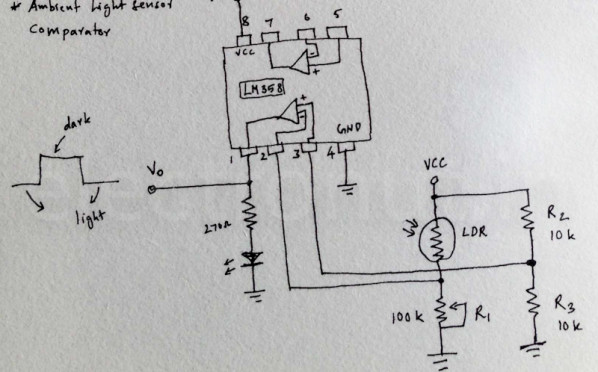 * Ambient Light Sensor
Comparator
8 7 6 5
VCC
- +
LM358
+ -
GND
1 2 3 4
dark
light
Vo
270Ω
VCC
LDR
R2
10k
100k R1
R3
10k